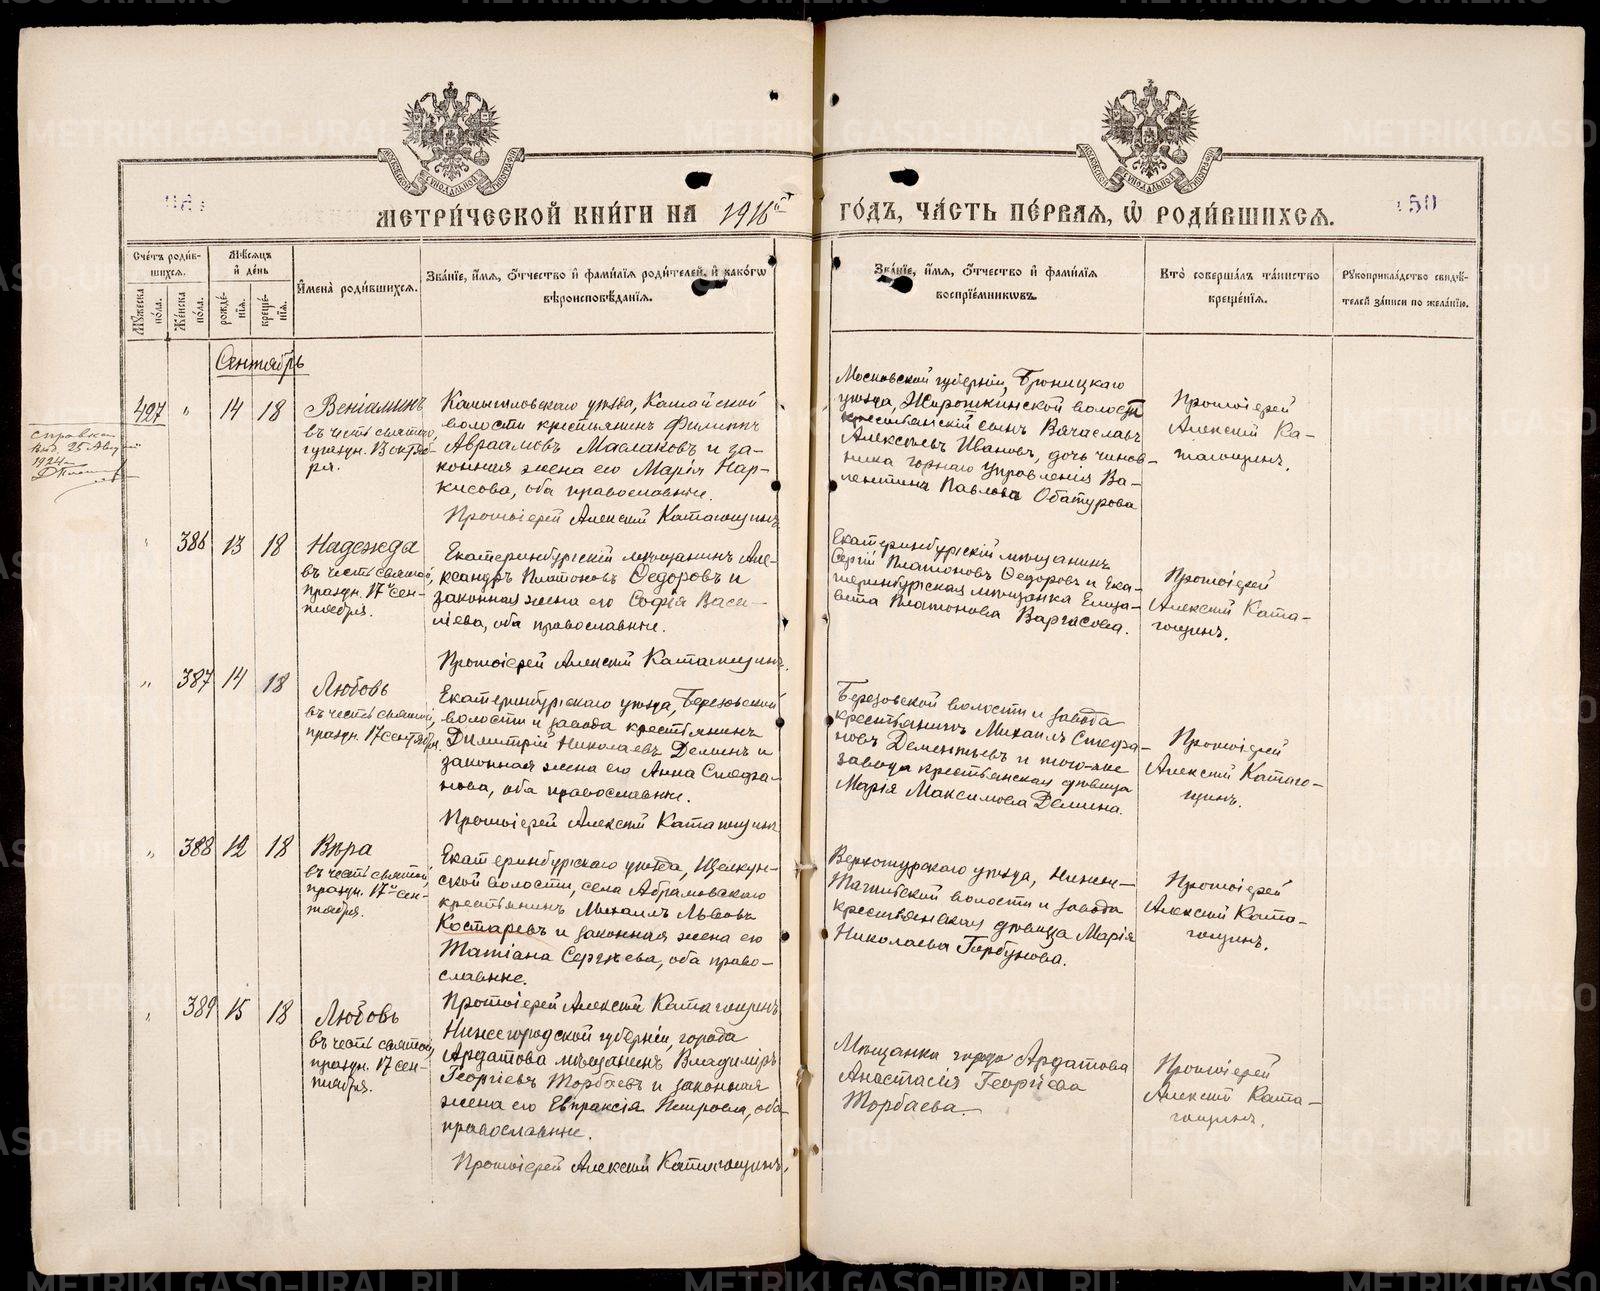 МЕТРИ́ЧЕСКОЙ КНИ́ГИ НА 1916й
ГО́ДЪ, ЧА́СТЬ ПЕ́РВАЯ, Ѡ РОДИ́ВШИХСѦ.
150
Сче́тъ роди́в-
шихсѧ.
Мужеска по́ла.
Же́нска по́ла.
Мѣ́сѧцъ
и҆ де́нь
рожде́-
нїѧ.
креще́-
нїѧ.
И҆мена̀ роди́вшихсѧ.
Зва́нїе, и҆́мѧ, ѻ҆́тчество и҆ фами́лїѧ роди́телей, и҆ како́гѡ
вѣроисповѣ́данїѧ.
Зва́нїе, и҆́мѧ, ѻ҆́тчество и҆ фами́лїѧ
воспрїе́мникѡвъ.
Кто̀ соверша́лъ та́инство
креще́нїѧ.
Рꙋкоприкла́дство свидѣ́-
телей за́писи по жела́нїю.
Сентябрь
427 " 14 18
Веніаминъ
въ честь святого,
празди. 13 октяб-
ря.
справка
выд. 25 Авг.
1924
Камышловскаго уѣзда, Катайской
волости крестьянинъ Филиппъ
Авраамовъ Маслаковъ и за-
конная жена его Марія Нар-
кисова, оба православные.
Протоіерей Алексій Катагощинъ
Московской губерніи, Бронницкаго
уѣзда, Жирошкинской волости
крестьянскій сынъ Вячеславъ
Алексѣевъ Ивановъ, дочь чинов-
ника горнаго управленія Ва-
лентина Павлова Обатурова
Протоіерей
Алексій Ка-
тагощинъ.
" 386 13 18
Надежда
въ честь святой,
праздн. 17 сен-
тября.
Екатеринбургскій мѣщанинъ Але-
ксандръ Платоновъ Ѳедоровъ и
законная жена его Софія Васи-
ліева, оба православные.
Протоіерей Алексій Катагощинъ.
Екатеринбургскій мѣщанинъ
Сергій Платоновъ Ѳедоровъ и Ека-
теринбургская мѣщанка Елиза-
вета Платонова Варгасова.
Протоіерей
Алексій Ката-
гощинъ.
" 387 14 18
Любовь
въ честь святой,
праздн. 17 сентября.
Екатеринбургскаго уѣзда, Березовской
волости и завода крестьянинъ
Димитрій Николаевъ Деминъ и
законная жена его Анна Стефа-
нова, оба православные.
Протоіерей Алексій Катагощинъ
Березовской волости и завода
крестьянинъ Михаилъ Стефа-
новъ Дементьевъ и того-же
завода крестьянская дѣвица
Марія Максимова Демина.
Протоіерей
Алексій Катаго-
щинъ.
" 388 12 18
Вѣра
въ честь святой,
праздн. 17й сен-
тября.
Екатеринбургскаго уѣзда, Щелкун-
ской волости, села Абрамовскаго
крестьянинъ Михаилъ Львовъ
Костаревъ и законная жена его
Татіана Сергѣева, оба право-
славные.
Протоіерей Алексій Катагощинъ
Верхотурскаго уѣзда, Нижне-
Тагильской волости и завода
крестьянская дѣвица Марія
Николаева Горбунова.
Протоіерей
Алексій Ката-
гощинъ.
" 389 15 18
Любовь
въ честь святой,
праздн. 17 сен-
тября.
Нижегородской губерніи, города
Ардатова мѣщанинъ Владиміръ
Георгіевъ Торбаевъ и законная
жена его Евпраксія Петрова, оба
православные.
Протоіерей Алексій Катагощинъ.
Мѣщанка города Ардатова
Анастасія Георгіева
Торбаева.
Протоіерей
Алексій Ката-
гощинъ.
METRIKI.GASO-URAL.RU